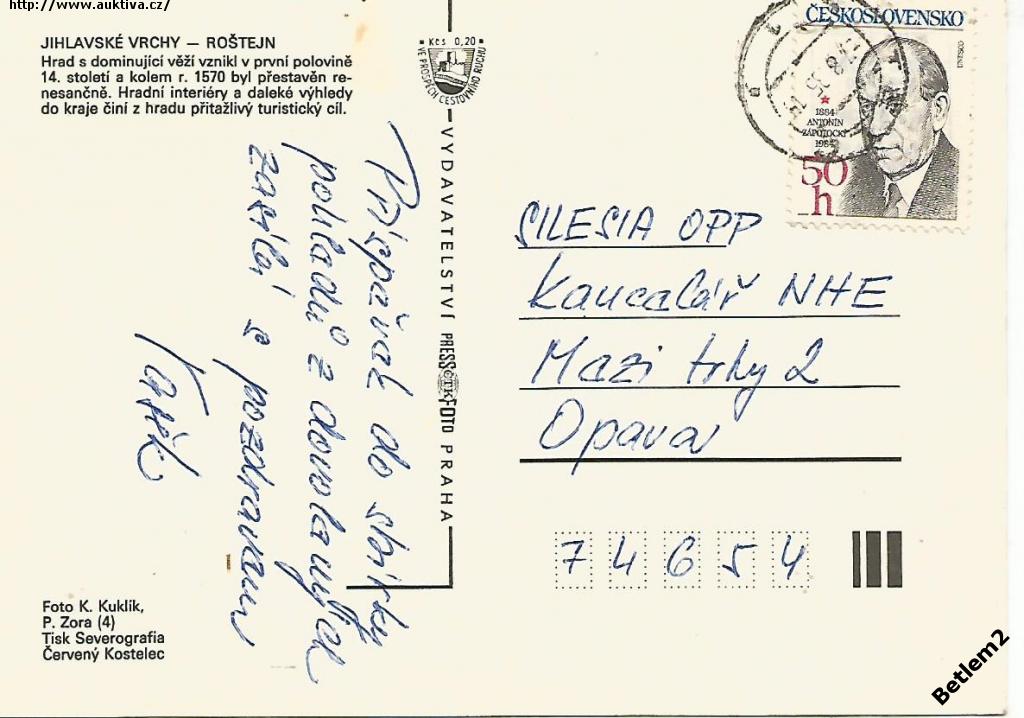 http://www.auktiva.cz/
JIHLAVSKÉ VRCHY — ROŠTEJN
Hrad s dominující věží vznikl v první polovině
14. století a kolem r. 1570 byl přestavěn re-
nesančně. Hradní interiéry a daleké výhledy
do kraje činí z hradu přitažlivý turistický cíl.
Kčs 0,20
VE PROSPĚCH CESTOVNÍHO RUCHU
VYDAVATELSTVÍ PRESSFOTO PRAHA
ČTK
ČESKOSLOVENSKO
1884
ANTONÍN
ZÁPOTOCKÝ
1984
50
h
Příspěvek do sbírky
pohladů z
zasílá s pozdravem
SILESIA OPP
Kancelář NHE
Mazi trhy 2
Opava
74654
Foto K. Kuklík,
P. Zora (4)
Tisk Severografia
Červený Kostelec
Betlem2